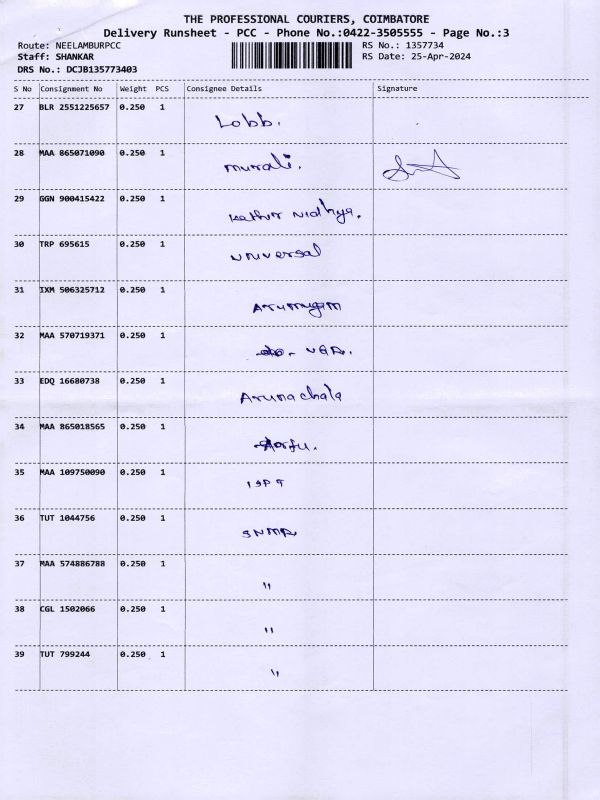 THE PROFESSIONAL COURIERS, COIMBATORE
Delivery Runsheet - PCC - Phone No.:0422-3505555 - Page No.:3
Route: NEELAMBURPCC
RS No.: 1357734
Staff: SHANKAR
RS Date: 25-Apr-2024
DRS No.: DCJB135773403
S No Consignment No Weight PCS Consignee Details Signature
27 BLR 2551225657 0.250 1
Lobb.
28 MAA 865071090 0.250 1
murali.
29 GGN 900415422 0.250 1
Kathir Nidhya.
30 TRP 695615 0.250 1
universal
31 IXM 506325712 0.250 1
Arumugam
32 MAA 570719371 0.250 1
33 EDQ 16680738 0.250 1
Arunachala
34 MAA 865018565 0.250 1
35 MAA 109750090 0.250 1
36 TUT 1044756 0.250 1
SNMR
37 MAA 574886788 0.250 1
"
38 CGL 1502066 0.250 1
"
39 TUT 799244 0.250 1
"